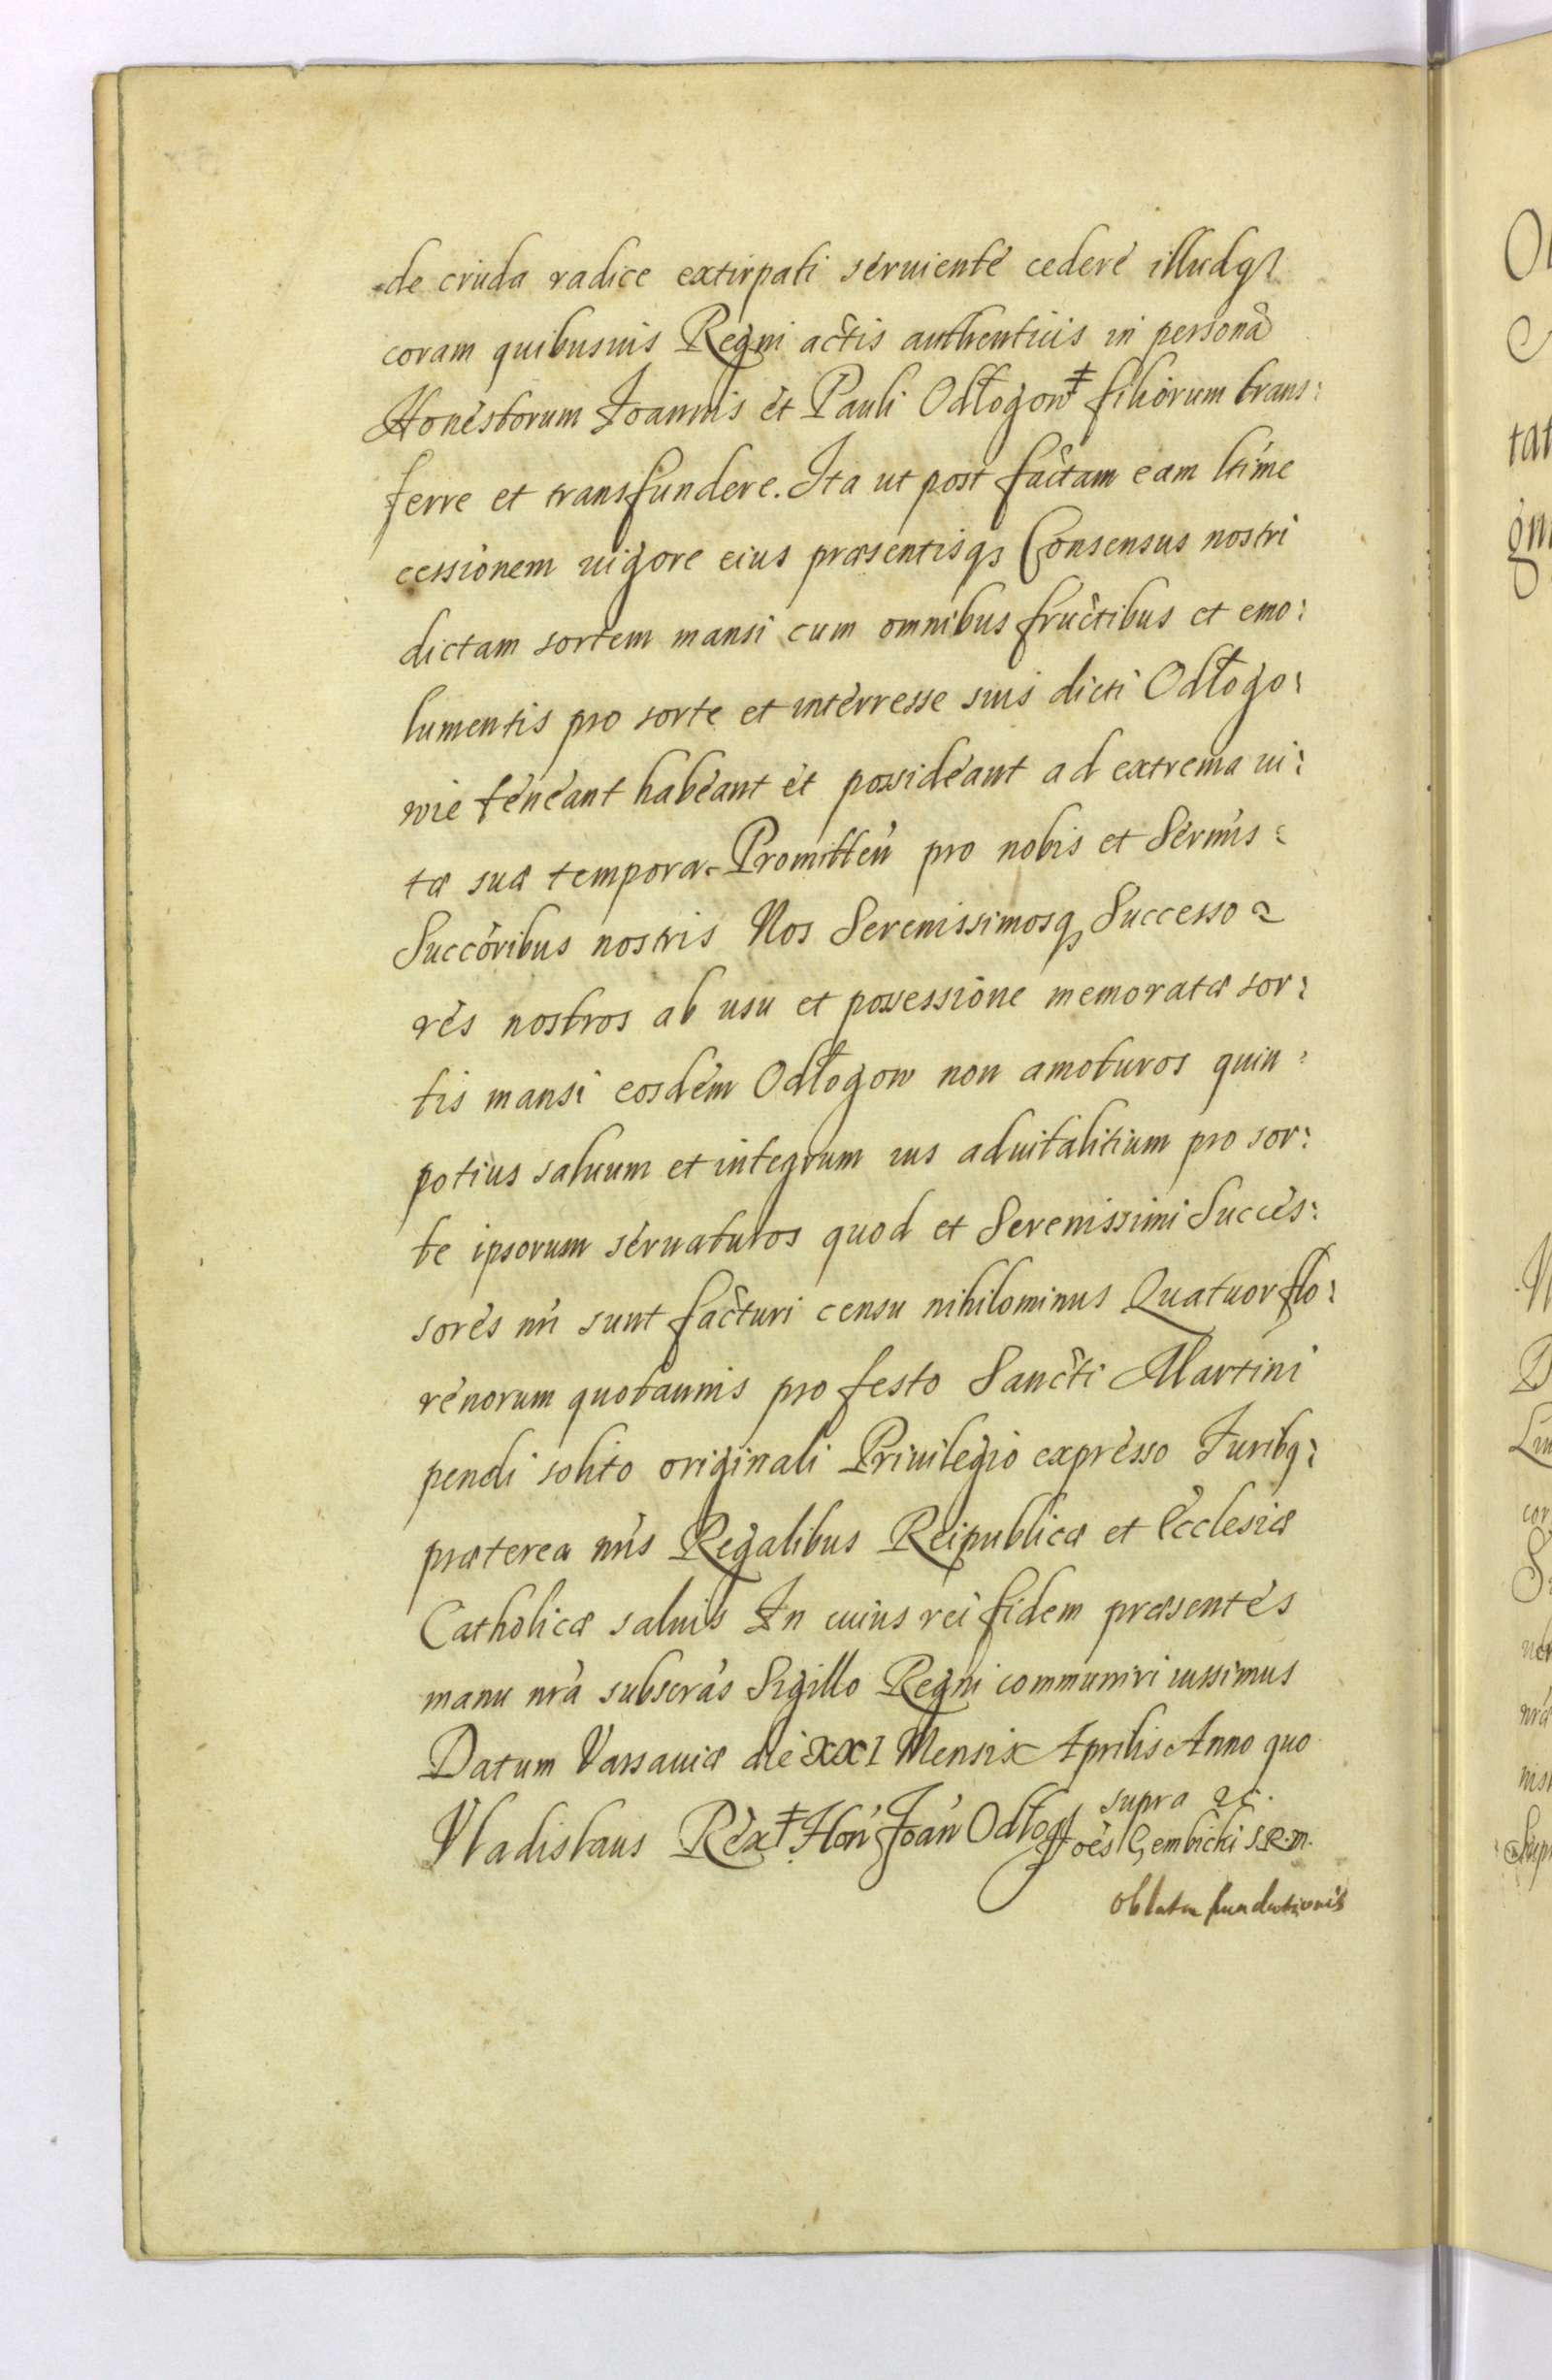 de cruda radice extirpati séruienté cederé illudq3
coram quibusuis Regni actis authenticis in personâ
Honéstorum Joannis èt Pauli Odłogow‡ filiorum trans:
ferre et transfundere. Ita ut post factam eam ltíme
cessionem uigore eius præsentisq3 Consensus nostri
dictam sortem mansi cum omnibus fructibus et emo:
lumentis pro sorte et intérresse suis dicti Odłogo:
wie ténéant habéant èt possidéant ad extrema ui:
tæ suæ tempora. Promittéń pro nobis et Sérmis:
Succóribus nostris Nos Serenissimosq3 Successo:
rés nostros ab usu et possessione memoratæ sor:
tis mansi eosdém Odłogow non amoturos quin:
potius saluum et integrum ius aduitalitium pro sor:
te ipsorum séruaturos quod et Serenissimi Succés:
sorés nri sunt facturi censu nihilominus Quatuor flo:
rénorum quotannis pro festo Sancti Martini
pendi solito originali Priuilegio exprésso Juribq:
præterea nris Regalibus Reipublicæ et Ecclesiæ
Catholicæ saluis In cuius rei fidem præsentés
manu nrá subscrás Sigillo Regni communiri iussimus
Datum Varsauiæ dié XXI Mensis Aprilis Anno quo
supra &c.
Vladislaus Réx ‡ Hoń Joań Odłog Joés Gembicki S.R.M.
oblata fundationis